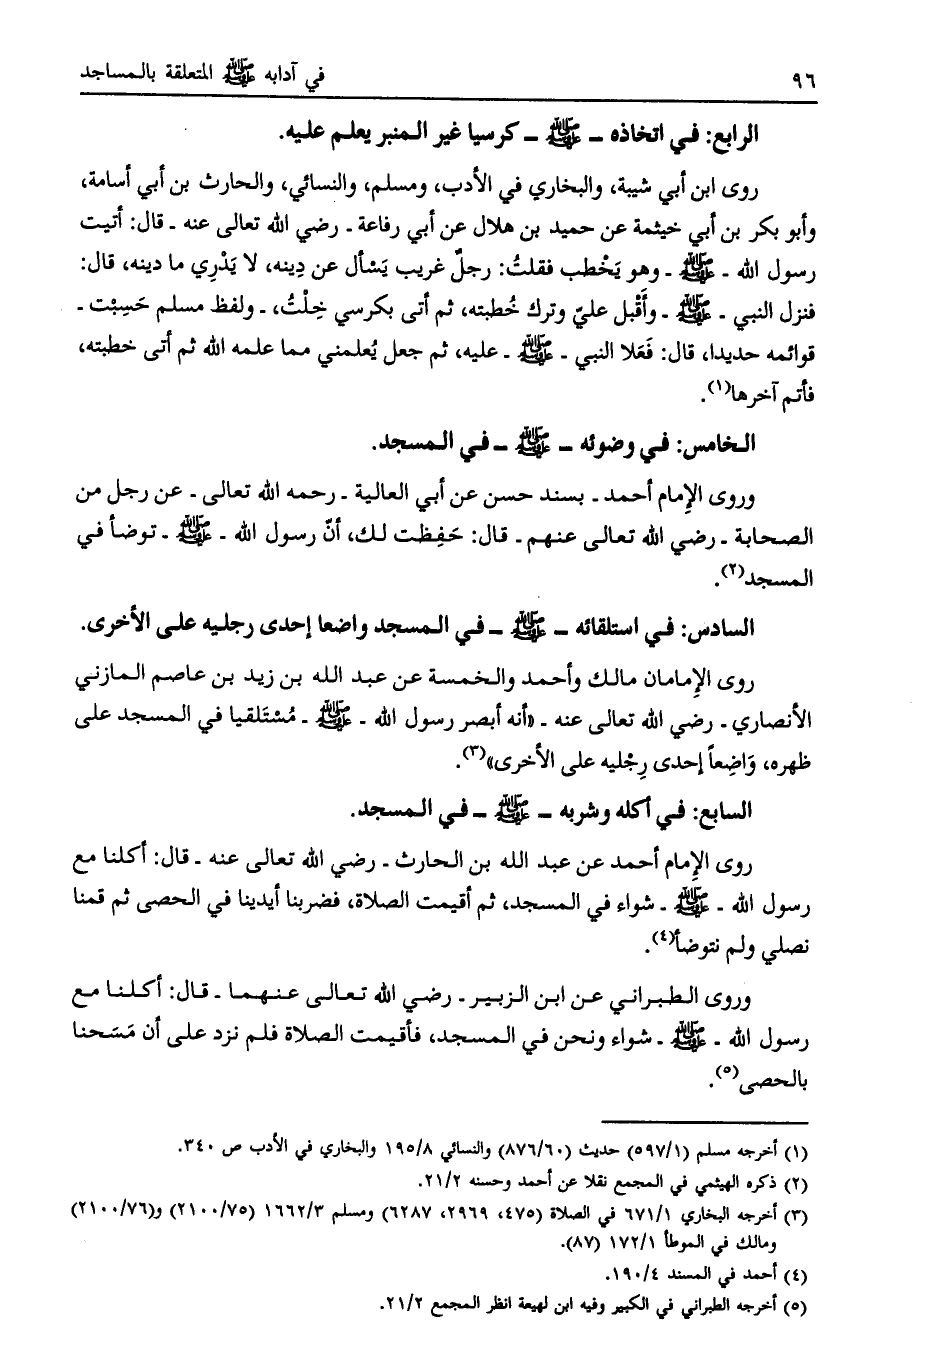 ٩٦
في آدابه ﷺ المتعلقة بالمساجد
الرابع: في اتخاذه ـ ﷺ ـ كرسيا غير المنبر يعلم عليه.
روى ابن أبي شيبة، والبخاري في الأدب، ومسلم، والنسائي، والحارث بن أبي أسامة،
وأبو بكر بن أبي خيثمة عن حميد بن هلال عن أبي رفاعة ـ رضي الله تعالى عنه ـ قال: أتيت
رسول الله ـ ﷺ ـ وهو يَخْطب فقلتُ: رجلٌ غريب يَسْأل عن دِينه، لا يَدْرِي ما دينه، قال:
فنزل النبي ـ ﷺ ـ وأَقْبل عليّ وترك خُطبته، ثم أتى بكرسي خِلْتُ، ـ ولفظ مسلم حَسِبْت ـ
قوائمه حديدا، قال: فَعَلا النبي ـ ﷺ ـ عليه، ثم جعل يُعلمني مما علمه الله ثم أتى خطبته،
فأتم آخرها(١).
الخامس: في وضوئه ـ ﷺ ـ في المسجد.
وروى الإمام أحمد ـ بسند حسن عن أبي العالية ـ رحمه الله تعالى ـ عن رجل من
الصحابة ـ رضي الله تعالى عنهم ـ قال: حَفِظت لك، أنّ رسول الله ـ ﷺ ـ توضأ في
المسجد(٢).
السادس: في استلقائه ـ ﷺ ـ في المسجد واضعا إحدى رجليه على الأخرى.
روى الإمامان مالك وأحمد والخمسة عن عبد الله بن زيد بن عاصم المازني
الأنصاري ـ رضي الله تعالى عنه ـ «أنه أبصر رسول الله ـ ﷺ ـ مُسْتَلقيا في المسجد على
ظهره، وَاضِعاً إحدى رِجْليه على الأخرى»(٣).
السابع: في أكله وشربه ـ ﷺ ـ في المسجد.
روى الإمام أحمد عن عبد الله بن الحارث ـ رضي الله تعالى عنه ـ قال: أكلنا مع
رسول الله ـ ﷺ ـ شواء في المسجد، ثم أقيمت الصلاة، فضربنا أيدينا في الحصى ثم قمنا
نصلي ولم نتوضأ(٤).
وروى الطبراني عن ابن الزبير ـ رضي الله تعالى عنهما ـ قال: أكلنا مع
رسول الله ـ ﷺ ـ شواء ونحن في المسجد، فأقيمت الصلاة فلم نزد على أن مَسَحنا
بالحصى(٥).
(١) أخرجه مسلم (٥٩٧/١) حديث (٨٧٦/٦٠) والنسائي ١٩٥/٨ والبخاري في الأدب ص ٣٤٠.
(٢) ذكره الهيثمي في المجمع نقلا عن أحمد وحسنه ٢١/٢.
(٣) أخرجه البخاري ٦٧١/١ في الصلاة (٤٧٥، ٢٩٦٩، ٦٢٨٧) ومسلم ١٦٦٢/٣ (٢١٠٠/٧٥) و(٢١٠٠/٧٦)
ومالك في الموطأ ١٧٢/١ (٨٧).
(٤) أحمد في المسند ١٩٠/٤.
(٥) أخرجه الطبراني في الكبير وفيه ابن لهيعة انظر المجمع ٢١/٢.